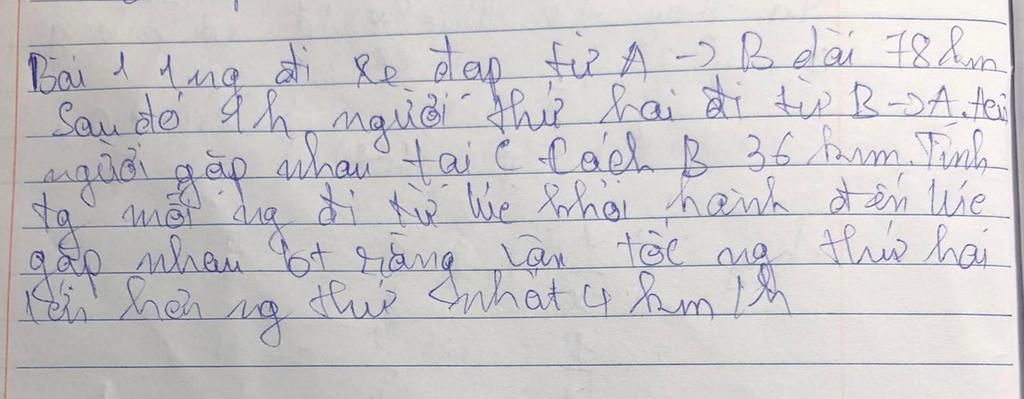 Bài 1 1 ng đi xe đạp từ A → B dài 78 km
Sau đó 1h người thứ hai đi từ B → A.
người gặp nhau tại C Cách B 36 km. Tính
tg mỗi ng đi từ lúc khởi hành đến lúc
gặp nhau bt rằng vận tốc ng thứ hai
lớn hơn ng thứ nhất 4 km/h